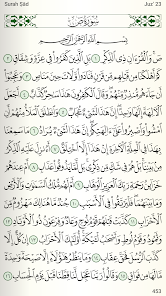 Surah Sād Juz' 23
سُورَةُ صٓ
بِسْمِ ٱللَّهِ ٱلرَّحْمَٰنِ ٱلرَّحِيمِ
صٓ ۚ وَٱلْقُرْءَانِ ذِى ٱلذِّكْرِ ١ بَلِ ٱلَّذِينَ كَفَرُوا۟ فِى عِزَّةٍ وَشِقَاقٍ ٢
كَمْ أَهْلَكْنَا مِن قَبْلِهِم مِّن قَرْنٍ فَنَادَوا۟ وَّلَاتَ حِينَ مَنَاصٍ ٣ وَعَجِبُوٓا۟
أَن جَآءَهُم مُّنذِرٌ مِّنْهُمْ ۖ وَقَالَ ٱلْكَٰفِرُونَ هَٰذَا سَٰحِرٌ كَذَّابٌ ٤ أَجَعَلَ
ٱلْءَالِهَةَ إِلَٰهًا وَٰحِدًا ۖ إِنَّ هَٰذَا لَشَىْءٌ عُجَابٌ ٥ وَٱنطَلَقَ ٱلْمَلَأُ مِنْهُمْ أَنِ
ٱمْشُوا۟ وَٱصْبِرُوا۟ عَلَىٰٓ ءَالِهَتِكُمْ ۖ إِنَّ هَٰذَا لَشَىْءٌ يُرَادُ ٦ مَا سَمِعْنَا بِهَٰذَا
فِى ٱلْمِلَّةِ ٱلْءَاخِرَةِ إِنْ هَٰذَآ إِلَّا ٱخْتِلَٰقٌ ٧ أَءُنزِلَ عَلَيْهِ ٱلذِّكْرُ
مِنۢ بَيْنِنَا ۚ بَلْ هُمْ فِى شَكٍّ مِّن ذِكْرِى ۖ بَل لَّمَّا يَذُوقُوا۟ عَذَابِ ٨ أَمْ عِندَهُمْ
خَزَآئِنُ رَحْمَةِ رَبِّكَ ٱلْعَزِيزِ ٱلْوَهَّابِ ٩ أَمْ لَهُم مُّلْكُ ٱلسَّمَٰوَٰتِ وَٱلْأَرْضِ
وَمَا بَيْنَهُمَا ۖ فَلْيَرْتَقُوا۟ فِى ٱلْأَسْبَٰبِ ١٠ جُندٌ مَّا هُنَالِكَ مَهْزُومٌ مِّنَ
ٱلْأَحْزَابِ ١١ كَذَّبَتْ قَبْلَهُمْ قَوْمُ نُوحٍ وَعَادٌ وَفِرْعَوْنُ ذُو ٱلْأَوْتَادِ ١٢
وَثَمُودُ وَقَوْمُ لُوطٍ وَأَصْحَٰبُ لْـَٔيْكَةِ ۚ أُو۟لَٰٓئِكَ ٱلْأَحْزَابُ ١٣ إِن كُلٌّ إِلَّا
كَذَّبَ ٱلرُّسُلَ فَحَقَّ عِقَابِ ١٤ وَمَا يَنظُرُ هَٰٓؤُلَآءِ إِلَّا صَيْحَةً وَٰحِدَةً
مَّا لَهَا مِن فَوَاقٍ ١٥ وَقَالُوا۟ رَبَّنَا عَجِّل لَّنَا قِطَّنَا قَبْلَ يَوْمِ ٱلْحِسَابِ ١٦
453